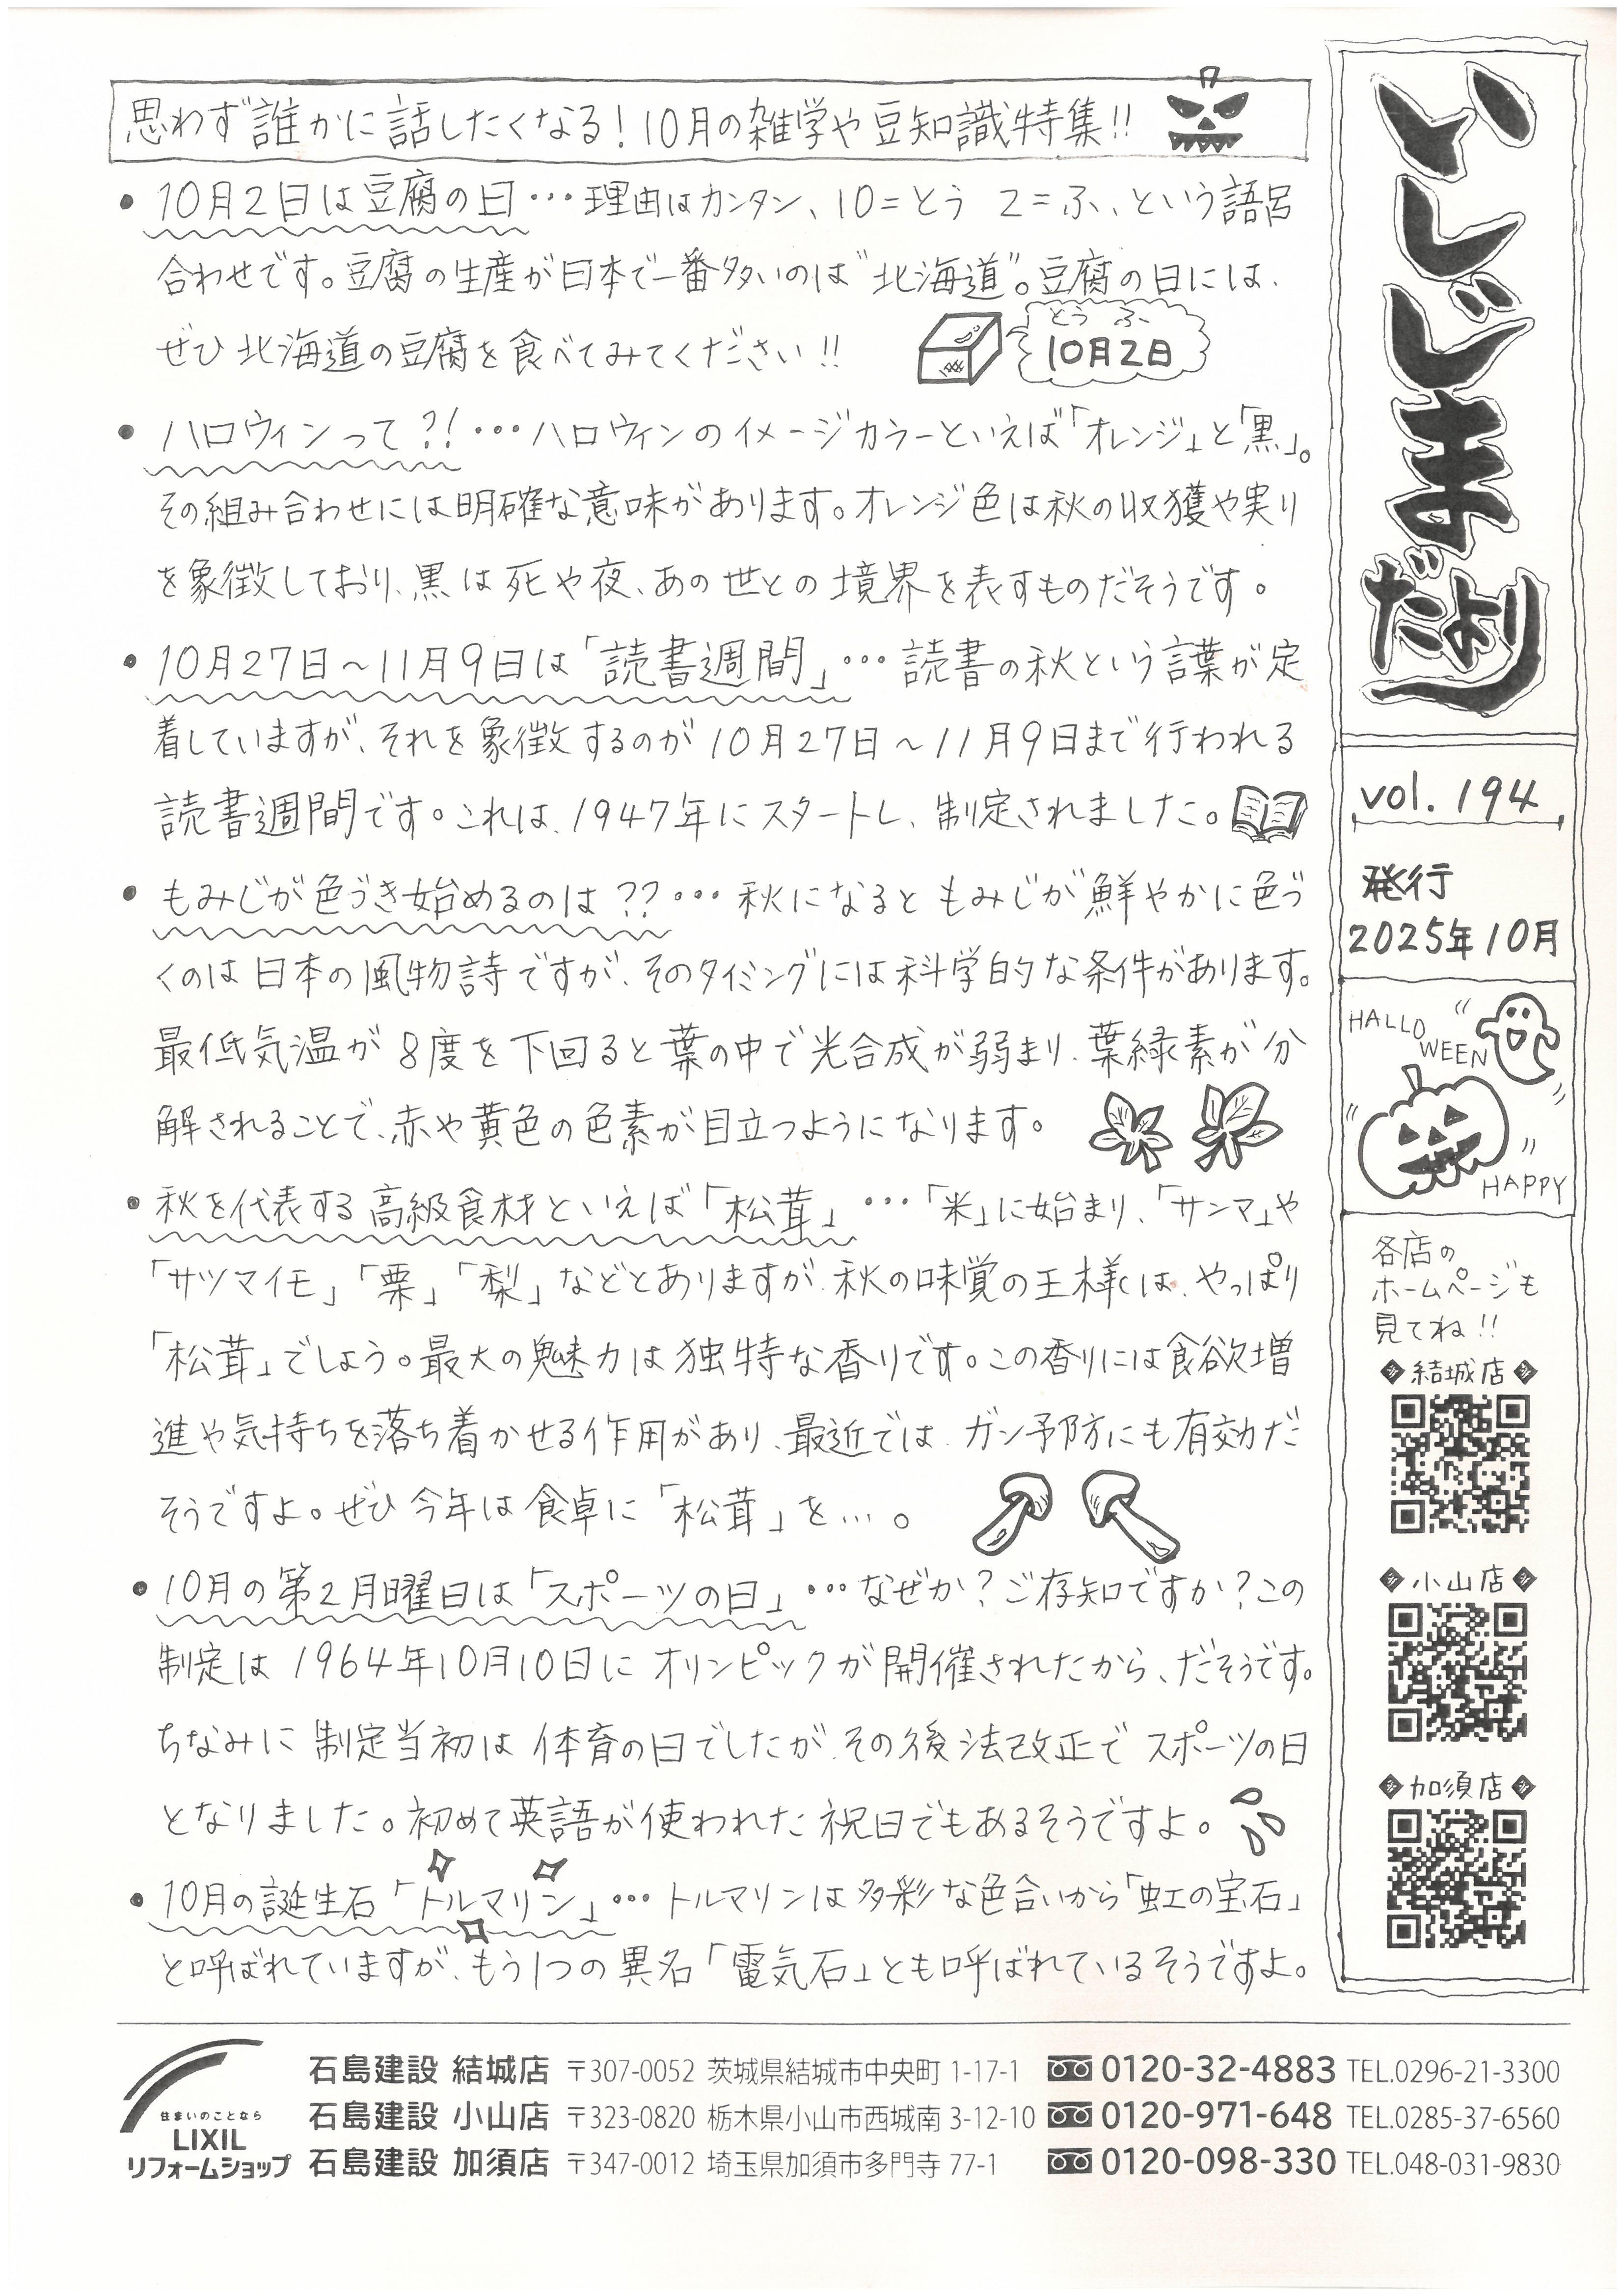 思わず誰かに話したくなる!10月の雑学や豆知識特集!!
・10月2日は豆腐の日…理由はカンタン、10=とう 2=ふ、という語呂
合わせです。豆腐の生産が日本で一番多いのは“北海道”。豆腐の日には、
ぜひ北海道の豆腐を食べてみてください!!
とう ふ
10月2日
・ハロウィンって?!…ハロウィンのイメージカラーといえば「オレンジ」と「黒」。
その組み合わせには明確な意味があります。オレンジ色は秋の収獲や実り
を象徴しており、黒は死や夜、あの世との境界を表すものだそうです。
・10月27日~11月9日は「読書週間」…読書の秋という言葉が定
着していますが、それを象徴するのが10月27日~11月9日まで行われる
読書週間です。これは、1947年にスタートし、制定されました。
・もみじが色づき始めるのは??…秋になるともみじが鮮やかに色づ
くのは日本の風物詩ですが、そのタイミングには科学的な条件があります。
最低気温が8度を下回ると葉の中で光合成が弱まり、葉緑素が分
解されることで、赤や黄色の色素が目立つようになります。
・秋を代表する高級食材といえば「松茸」…「米」に始まり、「サンマ」や
「サツマイモ」「栗」「梨」などとありますが、秋の味覚の王様は、やっぱり
「松茸」でしょう。最大の魅力は独特な香りです。この香りには食欲増
進や気持ちを落ち着かせる作用があり、最近では、ガン予防にも有効だ
そうですよ。ぜひ今年は食卓に「松茸」を…。
・10月の第2月曜日は「スポーツの日」…なぜか?ご存知ですか?この
制定は1964年10月10日にオリンピックが開催されたから、だそうです。
ちなみに制定当初は体育の日でしたが、その後法改正でスポーツの日
となりました。初めて英語が使われた祝日でもあるそうですよ。
・10月の誕生石「トルマリン」…トルマリンは多彩な色合いから「虹の宝石」
と呼ばれていますが、もう1つの異名「電気石」とも呼ばれているそうですよ。
いしじまだより
vol.194
発行
2025年10月
HALLO
WEEN
HAPPY
各店の
ホームページも
見てね!!
◆結城店◆
◆小山店◆
◆加須店◆
住まいのことなら
LIXIL
リフォームショップ
石島建設 結城店 〒307-0052 茨城県結城市中央町 1-17-1 0120-32-4883 TEL.0296-21-3300
石島建設 小山店 〒323-0820 栃木県小山市西城南 3-12-10 0120-971-648 TEL.0285-37-6560
石島建設 加須店 〒347-0012 埼玉県加須市多門寺 77-1 0120-098-330 TEL.048-031-9830